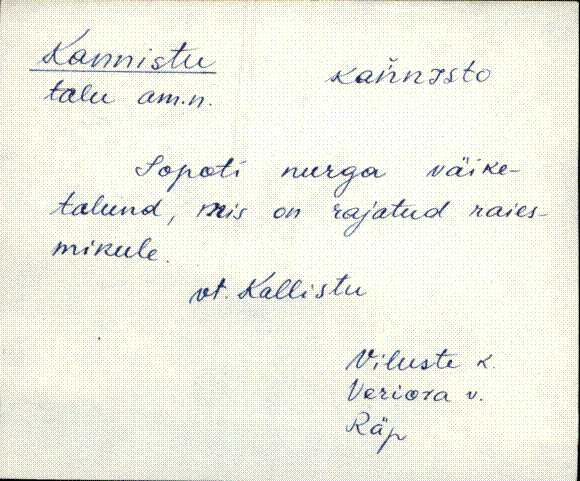 Kannistu kan̆nsto
talu am.n.
Sopoti nurga väike-
talund, mis on rajatud raies-
mikule.
vt. Kallistu
Viluste k.
Veriora v.
Räp